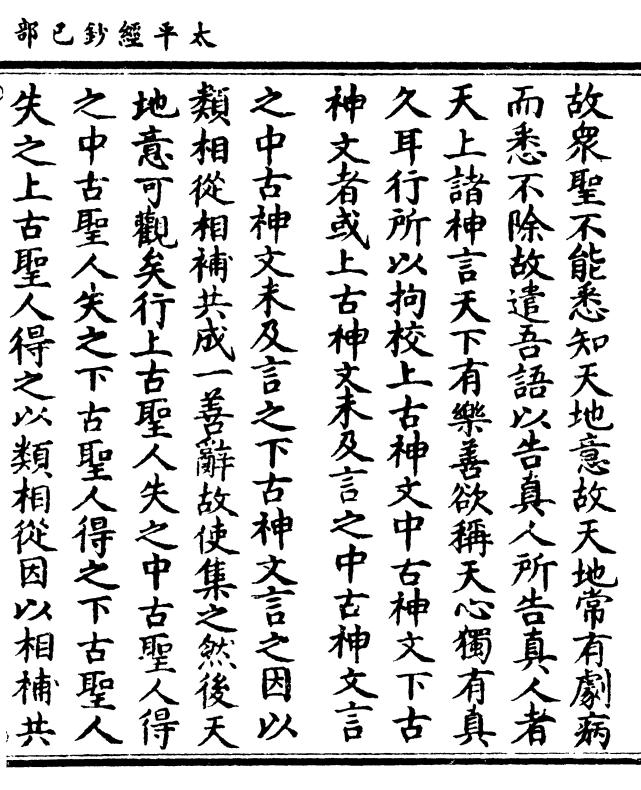 太平經鈔己部
故衆聖不能悉知天地意故天地常有劇病
而悉不除故遣吾語以告真人所告真人者
天上諸神言天下有樂善欲稱天心獨有真
久耳行所以拘校上古神文中古神文下古
神文者或上古神文未及言之中古神文言
之中古神文未及言之下古神文言之因以
類相從相補共成一善辭故使集之然後天
地意可觀矣行上古聖人失之中古聖人得
之中古聖人失之下古聖人得之下古聖人
失之上古聖人得之以類相從因以相補共